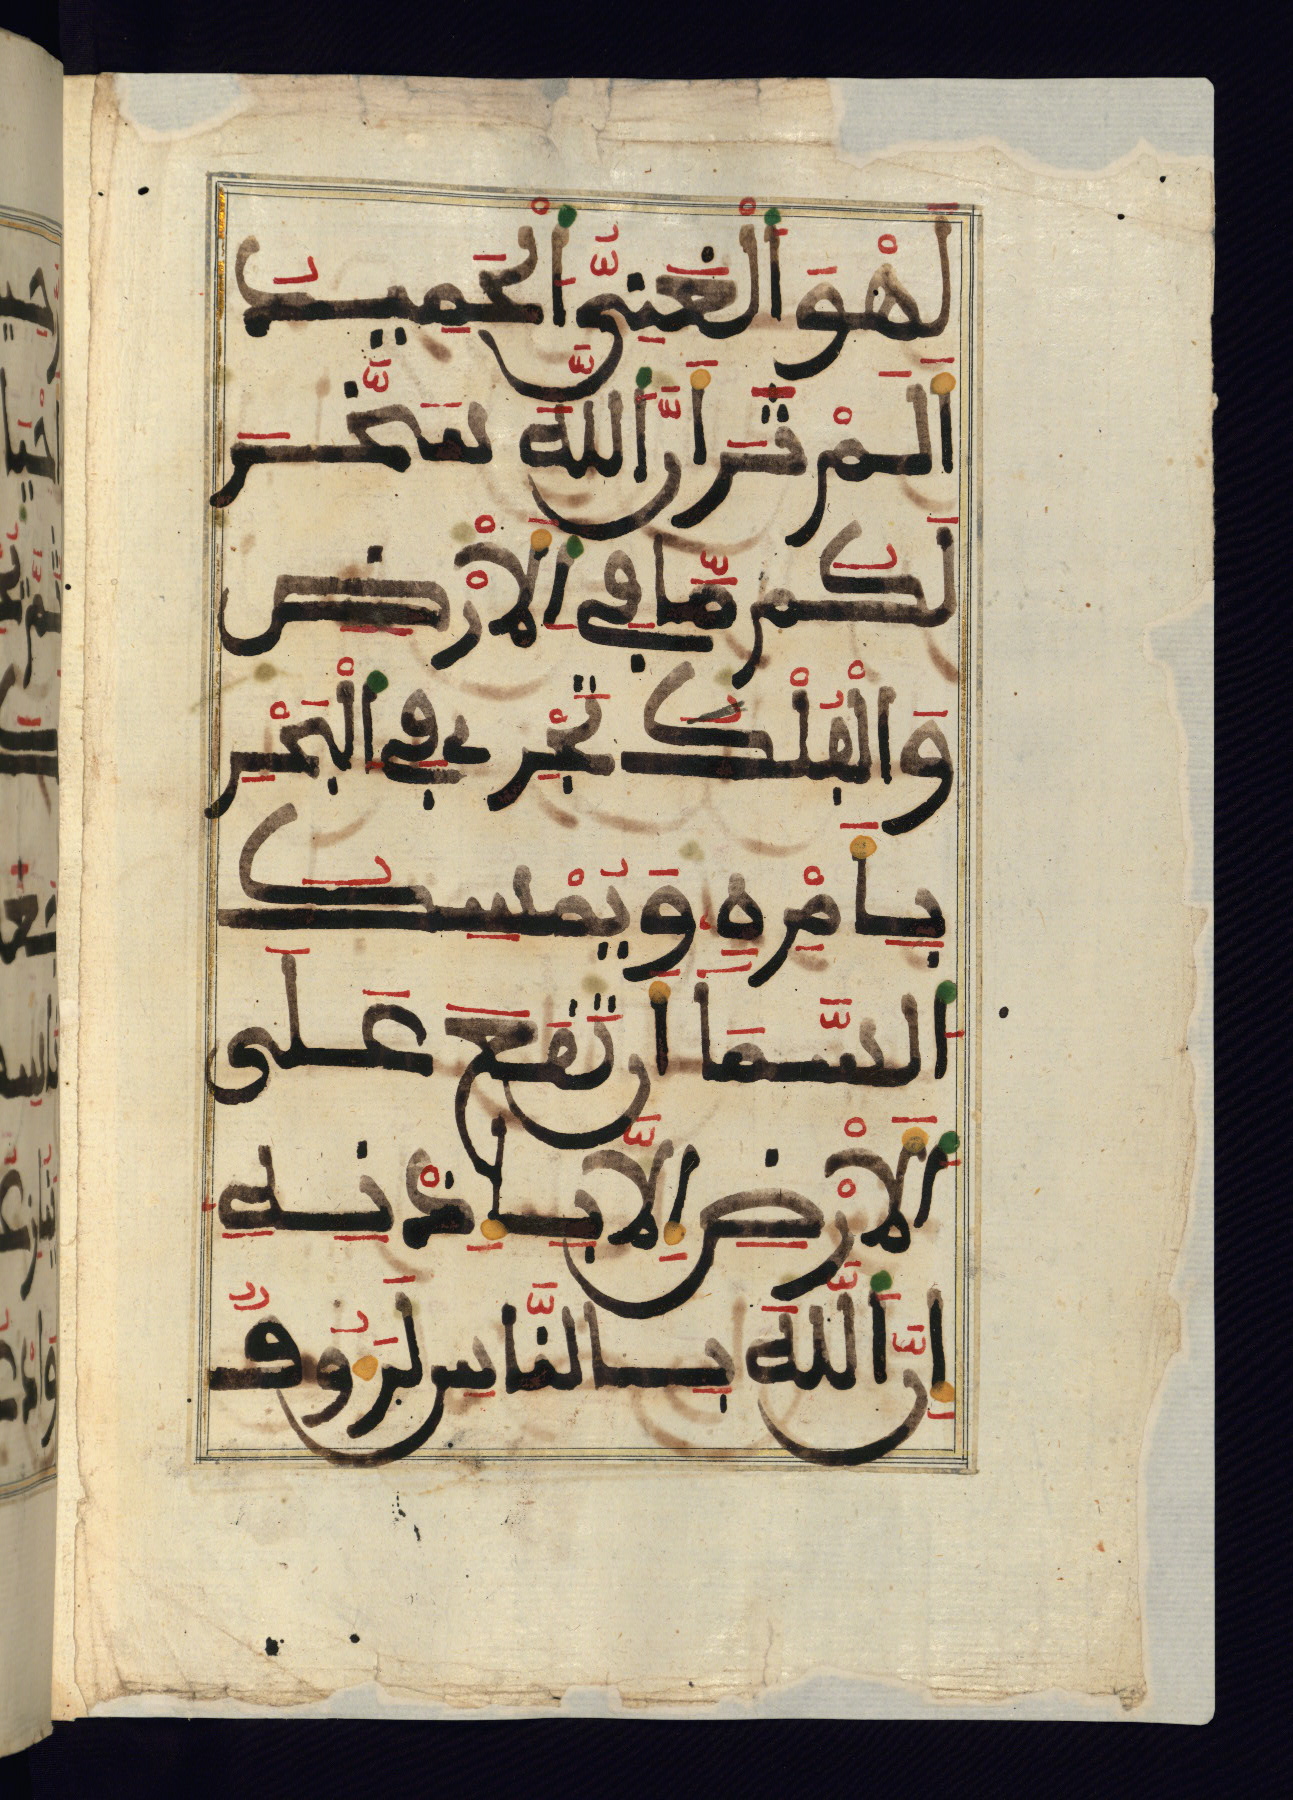 لَهْوَ اَ۬لْغَنِيُّ اُ۬لْحَمِيدُ
أَلَمْ تَرَ أَنَّ اَ۬للَّهَ سَخَّرَ
لَكُم مَّا فِي اِ۬لْأَرْضِ
وَالْفُلْكَ تَجْرِي فِي اِ۬لْبَحْرِ
بِأَمْرِهِ وَيُمْسِكُ
اَ۬لسَّمَا أَن تَقَعَ عَلَى
اَ۬لْأَرْضِ إِلَّا بِإِذْنِهِ
إِنَّ اَ۬للَّهَ بِالنَّاسِ لَرَؤُفٌ